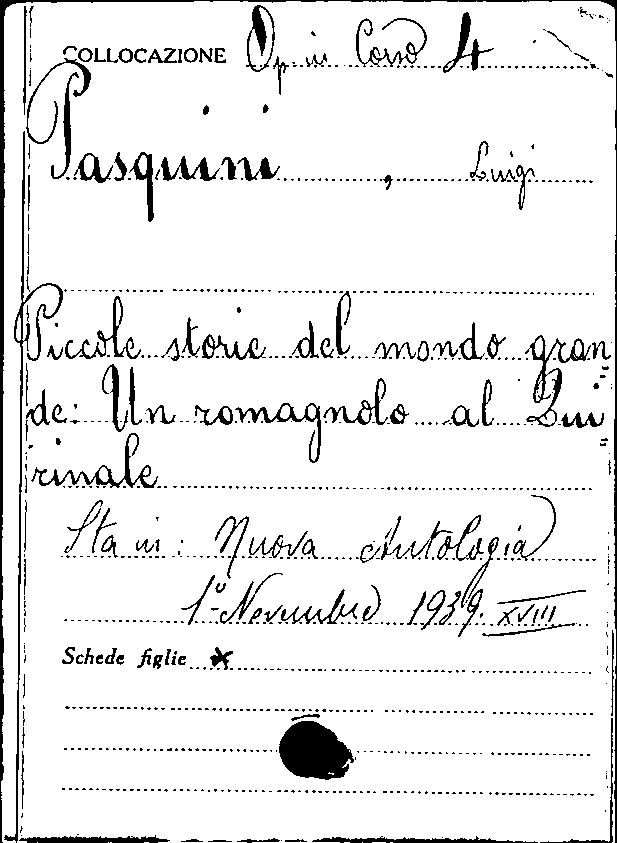 COLLOCAZIONE Op in Corso 4
Pasquini , Luigi
Piccole storie del mondo gran
de: Un romagnolo al Qui
rinale
Sta in: Nuova Antologia
1º Novembre 1939. XVIII
Schede figlie x